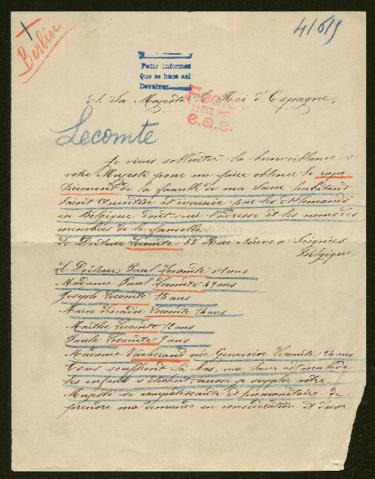 Berlin
41619
Pedir informes
Que se hace así
Devolver
A Sa Majesté le Roi d'Espagne,
e.a.c.
Lecomte
Je viens solliciter la bienveillance
votre Majesté pour me faire obtenir le rapa
triement de la famille de ma Sœur habitant
Saint Quentin et évacuée par les Allemands
en Belgique dont l'adresse et les noms des
membres de la famille
Le Docteur Lecomte 55 Soignies
Belgique
Le Docteur Paul Lecomte ans
Madame Paul Lecomte 49 ans
Joseph Lecomte 15 ans
Marie Lecomte 14 ans
Marthe Lecomte 12 ans
Paule Lecomte 9 ans
Madame née Geneviève Lecomte 24 ans
Tous souffrent là bas, ma Sœur est malade
les enfants s'étiolent, aussi je supplie votre
Majesté si compatissante et humanitaire de
prendre ma demande en considération et d'user